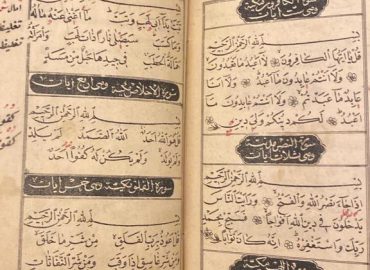 وهي ست آيات
بسم الله الرحمن الرحيم
قل يا أيها الكافرون لا أعبد ما تعبدون
ولا أنتم عابدون ما أعبد ولا أنا
عابد ما عبدتم ولا أنتم عابدون ما
أعبد لكم دينكم ولي دين
سورة النصر مدنية
وهي ثلاث آيات
بسم الله الرحمن الرحيم
إذا جاء نصر الله والفتح ورأيت الناس
يدخلون في دين الله أفواجا فسبح بحمد
ربك واستغفره إنه كان توابا
تبت يدا أبي لهب وتب ما أغنى عنه ماله
وما كسب سيصلى نارا ذات لهب وامرأته
حمالة الحطب في جيدها حبل من مسد
سورة الإخلاص مكية وهي أربع آيات
بسم الله الرحمن الرحيم
قل هو الله أحد الله الصمد لم يلد
ولم يولد ولم يكن له كفوا أحد
سورة الفلق مكية وهي خمس آيات
بسم الله الرحمن الرحيم
قل أعوذ برب الفلق من شر ما خلق
ومن شر غاسق إذا وقب ومن شر النفاثات